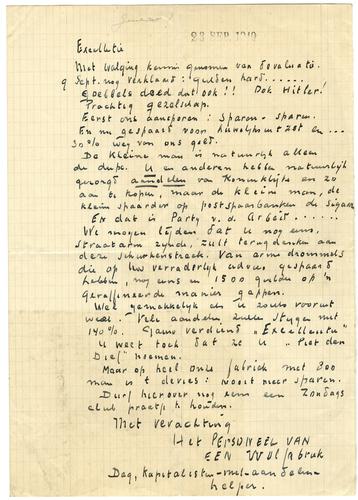 23 SEP. 1949
Excellentie
Met walging kennis genomen van devaluatie.
9 Sept. nog verklaard: gulden hard......
Goebbels deed dat ook!! Ook Hitler!
Prachtig gezelschap.
Eerst ons aansporen: sparen - sparen.
En nu gespaard voor huwelijksuitzet en ...
30% weg van ons geld.
De kleine man is natuurlijk alleen
de dupe. U en anderen hebben natuurlijk
gezorgd aandelen van Koninklijke en zo
aan te kopen, maar de kleine man, de
kleine spaarder op postspaarbanken de sigaar
En dat is Party v. d. Arbeid......
We mogen lijden dat U nog eens,
straatarm zijnde, zult terugdenken aan
deze schurkenstreek. Van arme drommels
die op Uw verraderlijk advies gespaard
hebben, nog eens 1500 gulden op 'n
geraffineerde manier gappen.
Wel gemakkelijk als U zoiets vooruit
weet. Vele aandelen zullen stijgen met
140%. Gauw verdiend "Excellentie"
U weet toch dat ze U "Piet den
Dief" noemen.
Maar op heel onze fabriek met 300
man is 't devies: nooit meer sparen.
Durf hierover nog eens een Zondags
club praatje te houden.
Met verachting
Het PERSONEEL VAN
EEN Wolfabriek
Dag, Kapitalisten-met-aandelen-
helper.